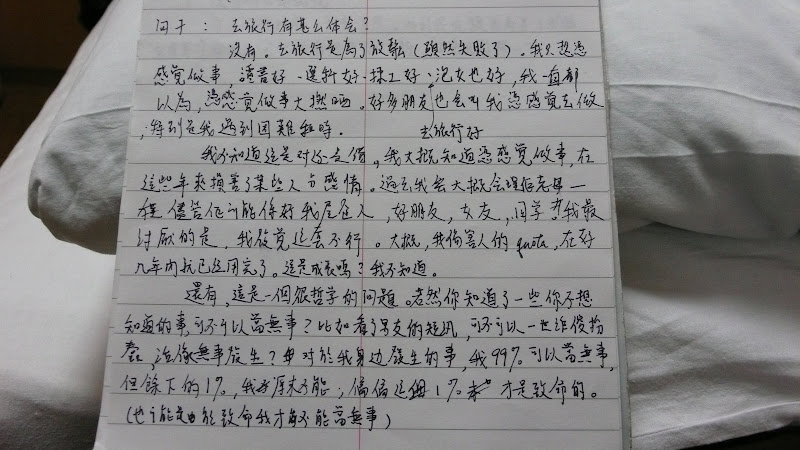 问于：去旅行有甚么体会？
没有。去旅行是為了放鬆（雖然失敗了）。我只想憑
感覺做事，讀書好、選科好、揀工好、泡女也好，我一直都
以為，憑感覺做事大撚晒。好多朋友也会叫我憑感覺去做
，特别在我遇到困難 時。
去旅行好
我不知道這是对还是借。我大概知道憑感覺做事，在
這些年來損害了某些人的感情。過去我会大概会理佢老母一
儘管佢可能係好我 人，好朋友，女友，同学 我最
讨厭的是，我發覺这套不行。大概，我傷害人的quota，在好
几年内就已经用完了。這是成長嗎？我不知道。
還有，這是一個很哲学的问题。若然你知道了一些你不想
知道的事，可不可以當無事？比如看了男友的短訊，可不可以一齐诈傻扮
懵，诈像無事發生？ 对於我身边發生的事，我99%可以當無事，
但餘下的1%，我 原来不能；偏偏这 1% 才是致命的。
（也可能是由於致命我才 不能當無事）